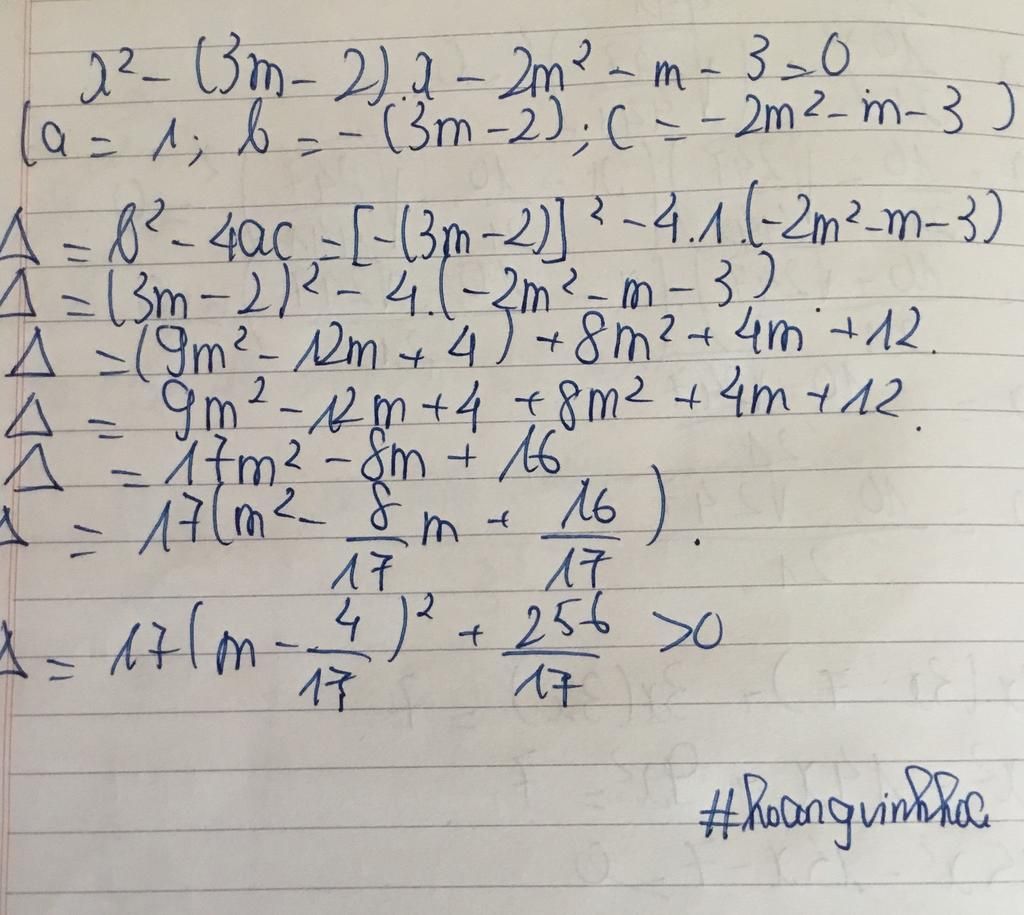 x² - (3m - 2).x - 2m² - m - 3 = 0
(a = 1; b = -(3m - 2); c = -2m² - m - 3)
Δ = b² - 4ac = [-(3m - 2)]² - 4.1.(-2m² - m - 3)
Δ = (3m - 2)² - 4.(-2m² - m - 3)
Δ = (9m² - 12m + 4) + 8m² + 4m + 12.
Δ = 9m² - 12m + 4 + 8m² + 4m + 12.
Δ = 17m² - 8m + 16
Δ = 17(m² - 8/17 m + 16/17).
Δ = 17(m - 4/17)² + 256/17 >0
#hoangvinhhoc